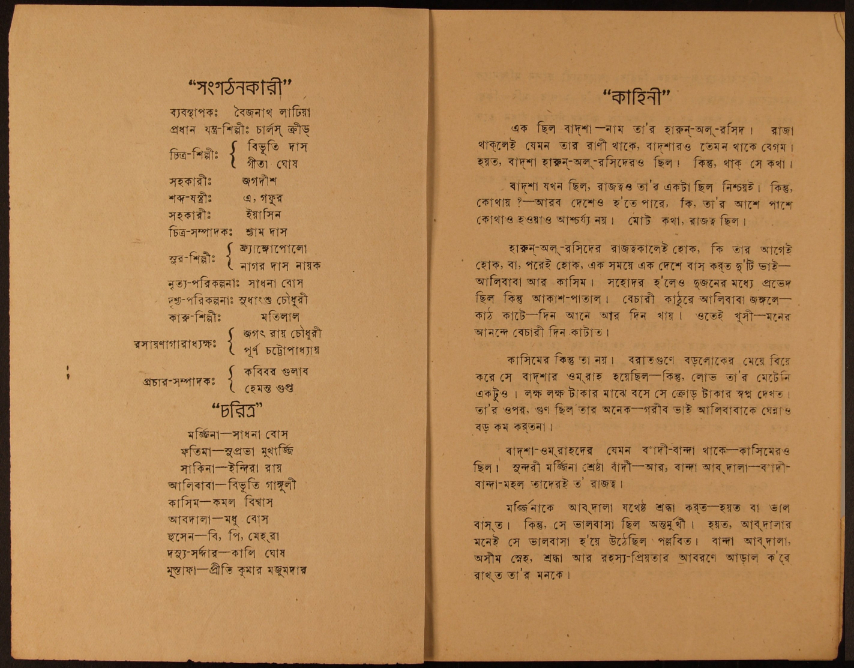 “সংগঠনকারী”
ব্যবস্থাপকঃ বৈজনাথ লাঢিয়া
প্রধান যন্ত্র-শিল্পীঃ চার্লস্ ক্রীড্
চিত্র-শিল্পীঃ { বিভূতি দাস
গীতা ঘোষ
সহকারীঃ জগদীশ
শব্দ-যন্ত্রীঃ এ, গফুর
সহকারীঃ ইয়াসিন
চিত্র-সম্পাদকঃ শ্যাম দাস
সুর-শিল্পীঃ { ফ্র্যাঙ্গোপোলো
নাগর দাস নায়ক
নৃত্য-পরিকল্পনাঃ সাধনা বোস
দৃশ্য-পরিকল্পনাঃ সুধাংশু চৌধুরী
কারু-শিল্পীঃ মতিলাল
রসায়ণাগারাধ্যক্ষঃ { জগৎ রায় চৌধুরী
পূর্ণ চট্টোপাধ্যায়
প্রচার-সম্পাদকঃ { কবিবর গুলাব
হেমন্ত গুপ্ত
“চরিত্র”
মর্জ্জিনা—সাধনা বোস
ফতিমা—সুপ্রভা মুখার্জ্জি
সাকিনা—ইন্দিরা রায়
আলিবাবা—বিভূতি গাঙ্গুলী
কাসিম—কমল বিশ্বাস
আবদালা—মধু বোস
হুসেন—বি, পি, মেহ্‌রা
দস্যু-সর্দ্দার—কালি ঘোষ
মুস্তাফা—প্রীতি কুমার মজুমদার
“কাহিনী”
এক ছিল বাদ্‌শা—নাম তা'র হারুন্-অল্-রসিদ। রাজা
থাক্‌লেই যেমন তার রাণী থাকে, বাদ্‌শারও তেমন থাকে বেগম।
হয়ত, বাদ্‌শা হারুন্-অল্-রসিদেরও ছিল। কিন্তু, থাক্ সে কথা।
বাদ্‌শা যখন ছিল, রাজত্বও তা'র একটা ছিল নিশ্চয়ই। কিন্তু,
কোথায় ?—আরব দেশেও হ'তে পারে, কি, তা'র আশে পাশে
কোথাও হওয়াও আশ্চর্য্য নয়। মোট কথা, রাজত্ব ছিল।
হারুন্-অল্-রসিদের রাজত্বকালেই হোক, কি তার আগেই
হোক, বা, পরেই হোক, এক সময়ে এক দেশে বাস কর্‌ত দু'টি ভাই—
আলিবাবা আর কাসিম। সহোদর হ'লেও দুজনের মধ্যে প্রভেদ
ছিল কিন্তু আকাশ-পাতাল। বেচারী কাঠুরে আলিবাবা জঙ্গলে—
কাঠ কাটে—দিন আনে আর দিন খায়। ওতেই খুসী—মনের
আনন্দে বেচারী দিন কাটাত।
কাসিমের কিন্তু তা নয়। বরাতগুণে বড়লোকের মেয়ে বিয়ে
করে সে বাদ্‌শার ওম্‌রাহ হয়েছিল—কিন্তু, লোভ তা'র মেটেনি
একটুও। লক্ষ লক্ষ টাকার মাঝে বসে সে ক্রোড় টাকার স্বপ্ন দেখত।
তা'র ওপর, গুণ ছিল তার অনেক—গরীব ভাই আলিবাবাকে ঘেন্নাও
বড় কম কর্‌তনা।
বাদ্‌শা-ওম্‌রাহদের যেমন বাঁদী-বান্দা থাকে—কাসিমেরও
ছিল। সুন্দরী মর্জ্জিনা শ্রেষ্ঠা বাঁদী—আর, বান্দা আব্‌দালা—বাঁদী-
বান্দা-মহল তাদেরই ত' রাজত্ব।
মর্জ্জিনাকে আব্‌দালা যথেষ্ট শ্রদ্ধা কর্‌ত—হয়ত বা ভাল
বাস্‌ত। কিন্তু, সে ভালবাসা ছিল অন্তর্মুখী। হয়ত, আব্‌দালার
মনেই সে ভালবাসা হ'য়ে উঠেছিল পল্লবিত। বান্দা আব্‌দালা,
অসীম স্নেহ, শ্রদ্ধা আর রহস্য-প্রিয়তার আবরণে আড়াল ক'রে
রাখ্‌ত তা'র মনকে।